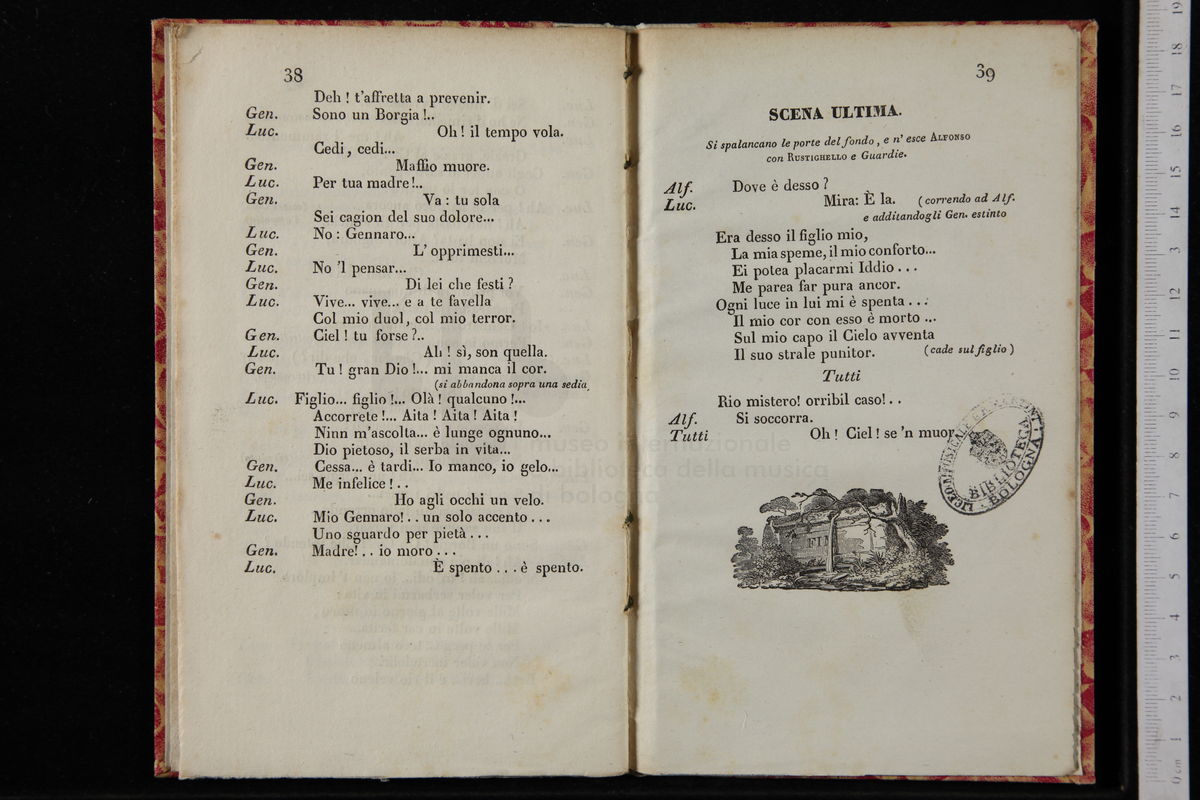 38
Deh ! t'affretta a prevenir.
Gen. Sono un Borgia !..
Luc. Oh ! il tempo vola.
Cedi, cedi...
Gen. Maffio muore.
Luc. Per tua madre !..
Gen. Va : tu sola
Sei cagion del suo dolore...
Luc. No : Gennaro...
Gen. L' opprimesti...
Luc. No 'l pensar...
Gen. Di lei che festi ?
Luc. Vive... vive... e a te favella
Col mio duol, col mio terror.
Gen. Ciel ! tu forse ?..
Luc. Ah ! sì, son quella.
Gen. Tu ! gran Dio !... mi manca il cor.
(si abbandona sopra una sedia
Luc. Figlio... figlio !... Olà ! qualcuno !...
Accorrete !... Aita ! Aita ! Aita !
Ninn m'ascolta... è lunge ognuno...
Dio pietoso, il serba in vita...
Gen. Cessa... è tardi... Io manco, io gelo...
Luc. Me infelice ! . .
Gen. Ho agli occhi un velo.
Luc. Mio Gennaro! . . un solo accento . . .
Uno sguardo per pietà . . .
Gen. Madre! . . io moro . . .
Luc. È spento . . . è spento.
39
SCENA ULTIMA.
Si spalancano le porte del fondo, e n' esce ALFONSO
con RUSTIGHELLO e Guardie.
Alf. Dove è desso ?
Luc. Mira: È la. (correndo ad Alf.
e additandogli Gen. estinto
Era desso il figlio mio,
La mia speme, il mio conforto...
Ei potea placarmi Iddio . . .
Me parea far pura ancor.
Ogni luce in lui mi è spenta . . .
Il mio cor con esso è morto ...
Sul mio capo il Cielo avventa
Il suo strale punitor. (cade sul figlio)
Tutti
Rio mistero! orribil caso! . .
Alf. Si soccorra.
Tutti Oh ! Ciel ! se 'n muor
LICEO MUSICALE
BIBLIOTECA
BOLOGNA
museo internazionale
e biblioteca della musica
di bologna
FIN
0 cm 1 2 3 4 5 6 7 8 9 10 11 12 13 14 15 16 17 18 19